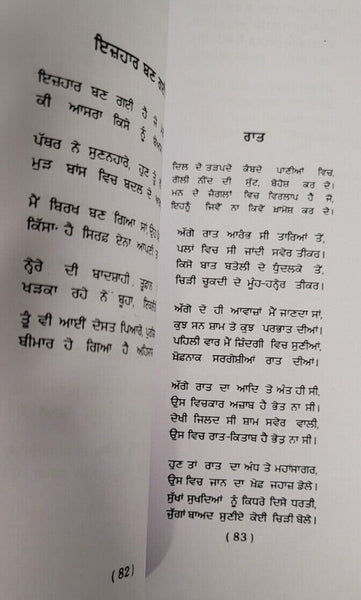 ਇਜ਼ਹਾਰ ਬਣ ਗਈ
ਇਜ਼ਹਾਰ ਬਣ ਗਈ ਹੈ
ਕੀ ਆਸਰਾ ਕਿਸੇ ਨੂੰ
ਪੱਥਰ ਨੇ ਸੁਣਨਹਾਰੇ, ਹੁਣ ਤੂੰ
ਮੁੜ ਬਾਂਸ ਵਿਚ ਬਦਲ ਦੇ
ਮੈਂ ਬਿਰਖ ਬਣ ਗਿਆ ਸਾਂ,
ਕਿੱਸਾ ਹੈ ਸਿਰਫ਼ ਏਨਾ ਆਪਣੀ
ਨ੍ਹੇਰੇ ਦੀ ਬਾਦਸ਼ਾਹੀ,
ਖੜਕਾ ਰਹੇ ਨੇ ਬੂਹਾ,
ਤੂੰ ਵੀ ਆਈਂ ਦੋਸਤ ਪਿਆਰੇ,
ਬੀਮਾਰ ਹੋ ਗਿਆ ਹੈ
(82)
ਰਾਤ
ਦਿਲ ਦੇ ਤੜਪਦੇ ਕੰਬਦੇ ਪਾਣੀਆਂ ਵਿਚ,
ਗੋਲੀ ਨੀਂਦ ਦੀ ਸੁੱਟ, ਬੇਹੋਸ਼ ਕਰ ਦੇ।
ਮਨ ਦੇ ਜੰਗਲਾਂ ਵਿਚ ਵਿਰਲਾਪ ਹੈ ਜੋ,
ਇਹਨੂੰ ਜਿਵੇਂ ਨਾ ਕਿਵੇਂ ਖ਼ਾਮੋਸ਼ ਕਰ ਦੇ।
ਅੱਗੇ ਰਾਤ ਆਰੰਭ ਸੀ ਤਾਰਿਆਂ ਤੋਂ,
ਪਲਾਂ ਵਿਚ ਸੀ ਜਾਂਦੀ ਸਵੇਰ ਤੀਕਰ।
ਕਿਸੇ ਬਾਤ ਬਤੋਲੀ ਦੇ ਧੁੰਦਲਕੇ ਤੋਂ
ਚਿੜੀ ਚੂਕਦੀ ਦੇ ਮੂੰਹ-ਹਨ੍ਹੇਰ ਤੀਕਰ।
ਅੱਗੇ ਦੋ ਹੀ ਆਵਾਜ਼ਾਂ ਮੈਂ ਜਾਣਦਾ ਸਾਂ,
ਕੁਝ ਸਨ ਸ਼ਾਮ ਤੇ ਕੁਝ ਪਰਭਾਤ ਦੀਆਂ।
ਪਹਿਲੀ ਵਾਰ ਮੈਂ ਜ਼ਿੰਦਗੀ ਵਿਚ ਸੁਣੀਆਂ,
ਖ਼ੌਫ਼ਨਾਕ ਸਰਗੋਸ਼ੀਆਂ ਰਾਤ ਦੀਆਂ।
ਅੱਗੇ ਰਾਤ ਦਾ ਆਦਿ ਤੇ ਅੰਤ ਹੀ ਸੀ,
ਉਸ ਵਿਚਕਾਰ ਅਜ਼ਾਬ ਹੈ ਭੇਤ ਨਾ ਸੀ।
ਦੇਖੀ ਜਿਲਦ ਸੀ ਸ਼ਾਮ ਸਵੇਰ ਵਾਲੀ,
ਉਸ ਵਿਚ ਰਾਤ-ਕਿਤਾਬ ਹੈ ਭੇਤ ਨਾ ਸੀ।
ਹੁਣ ਤਾਂ ਰਾਤ ਦਾ ਅੰਧ ਤੇ ਮਹਾਂਸਾਗਰ,
ਉਸ ਵਿਚ ਜਾਨ ਦਾ ਖ਼ੌਫ਼ ਜਹਾਜ਼ ਡੋਲੇ।
ਸੁੱਖਾਂ ਸੁਖਦਿਆਂ ਨੂੰ ਕਿਧਰੇ ਦਿਸੇ ਧਰਤੀ,
ਜੁੱਗਾਂ ਬਾਅਦ ਸੁਣੀਏ ਕੋਈ ਚਿੜੀ ਬੋਲੇ।
(83)